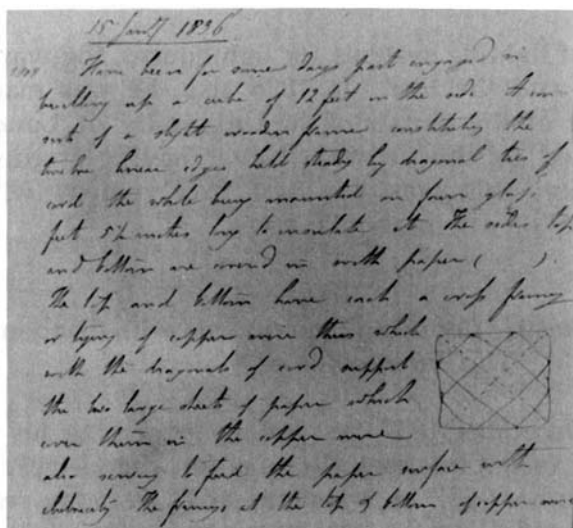 15 Jany 1836
Have been for some days past engaged in
building up a cube of 12 feet in the side. It con-
sists of a slight wooden frame constituting the
twelve linear edges held steady by diagonal ties of
cord the whole being mounted on four glass
feet 5½ inches long to insulate it. The sides top
and bottom are covered in with paper (      ).
The top and bottom have each a cross framing
or tying of copper wire thus which
with the diagonals of cord support
the two large sheets of paper which
cover them in the copper wire
also serving to feed the paper surface with
electricity The framings at the top & bottom of copper wire